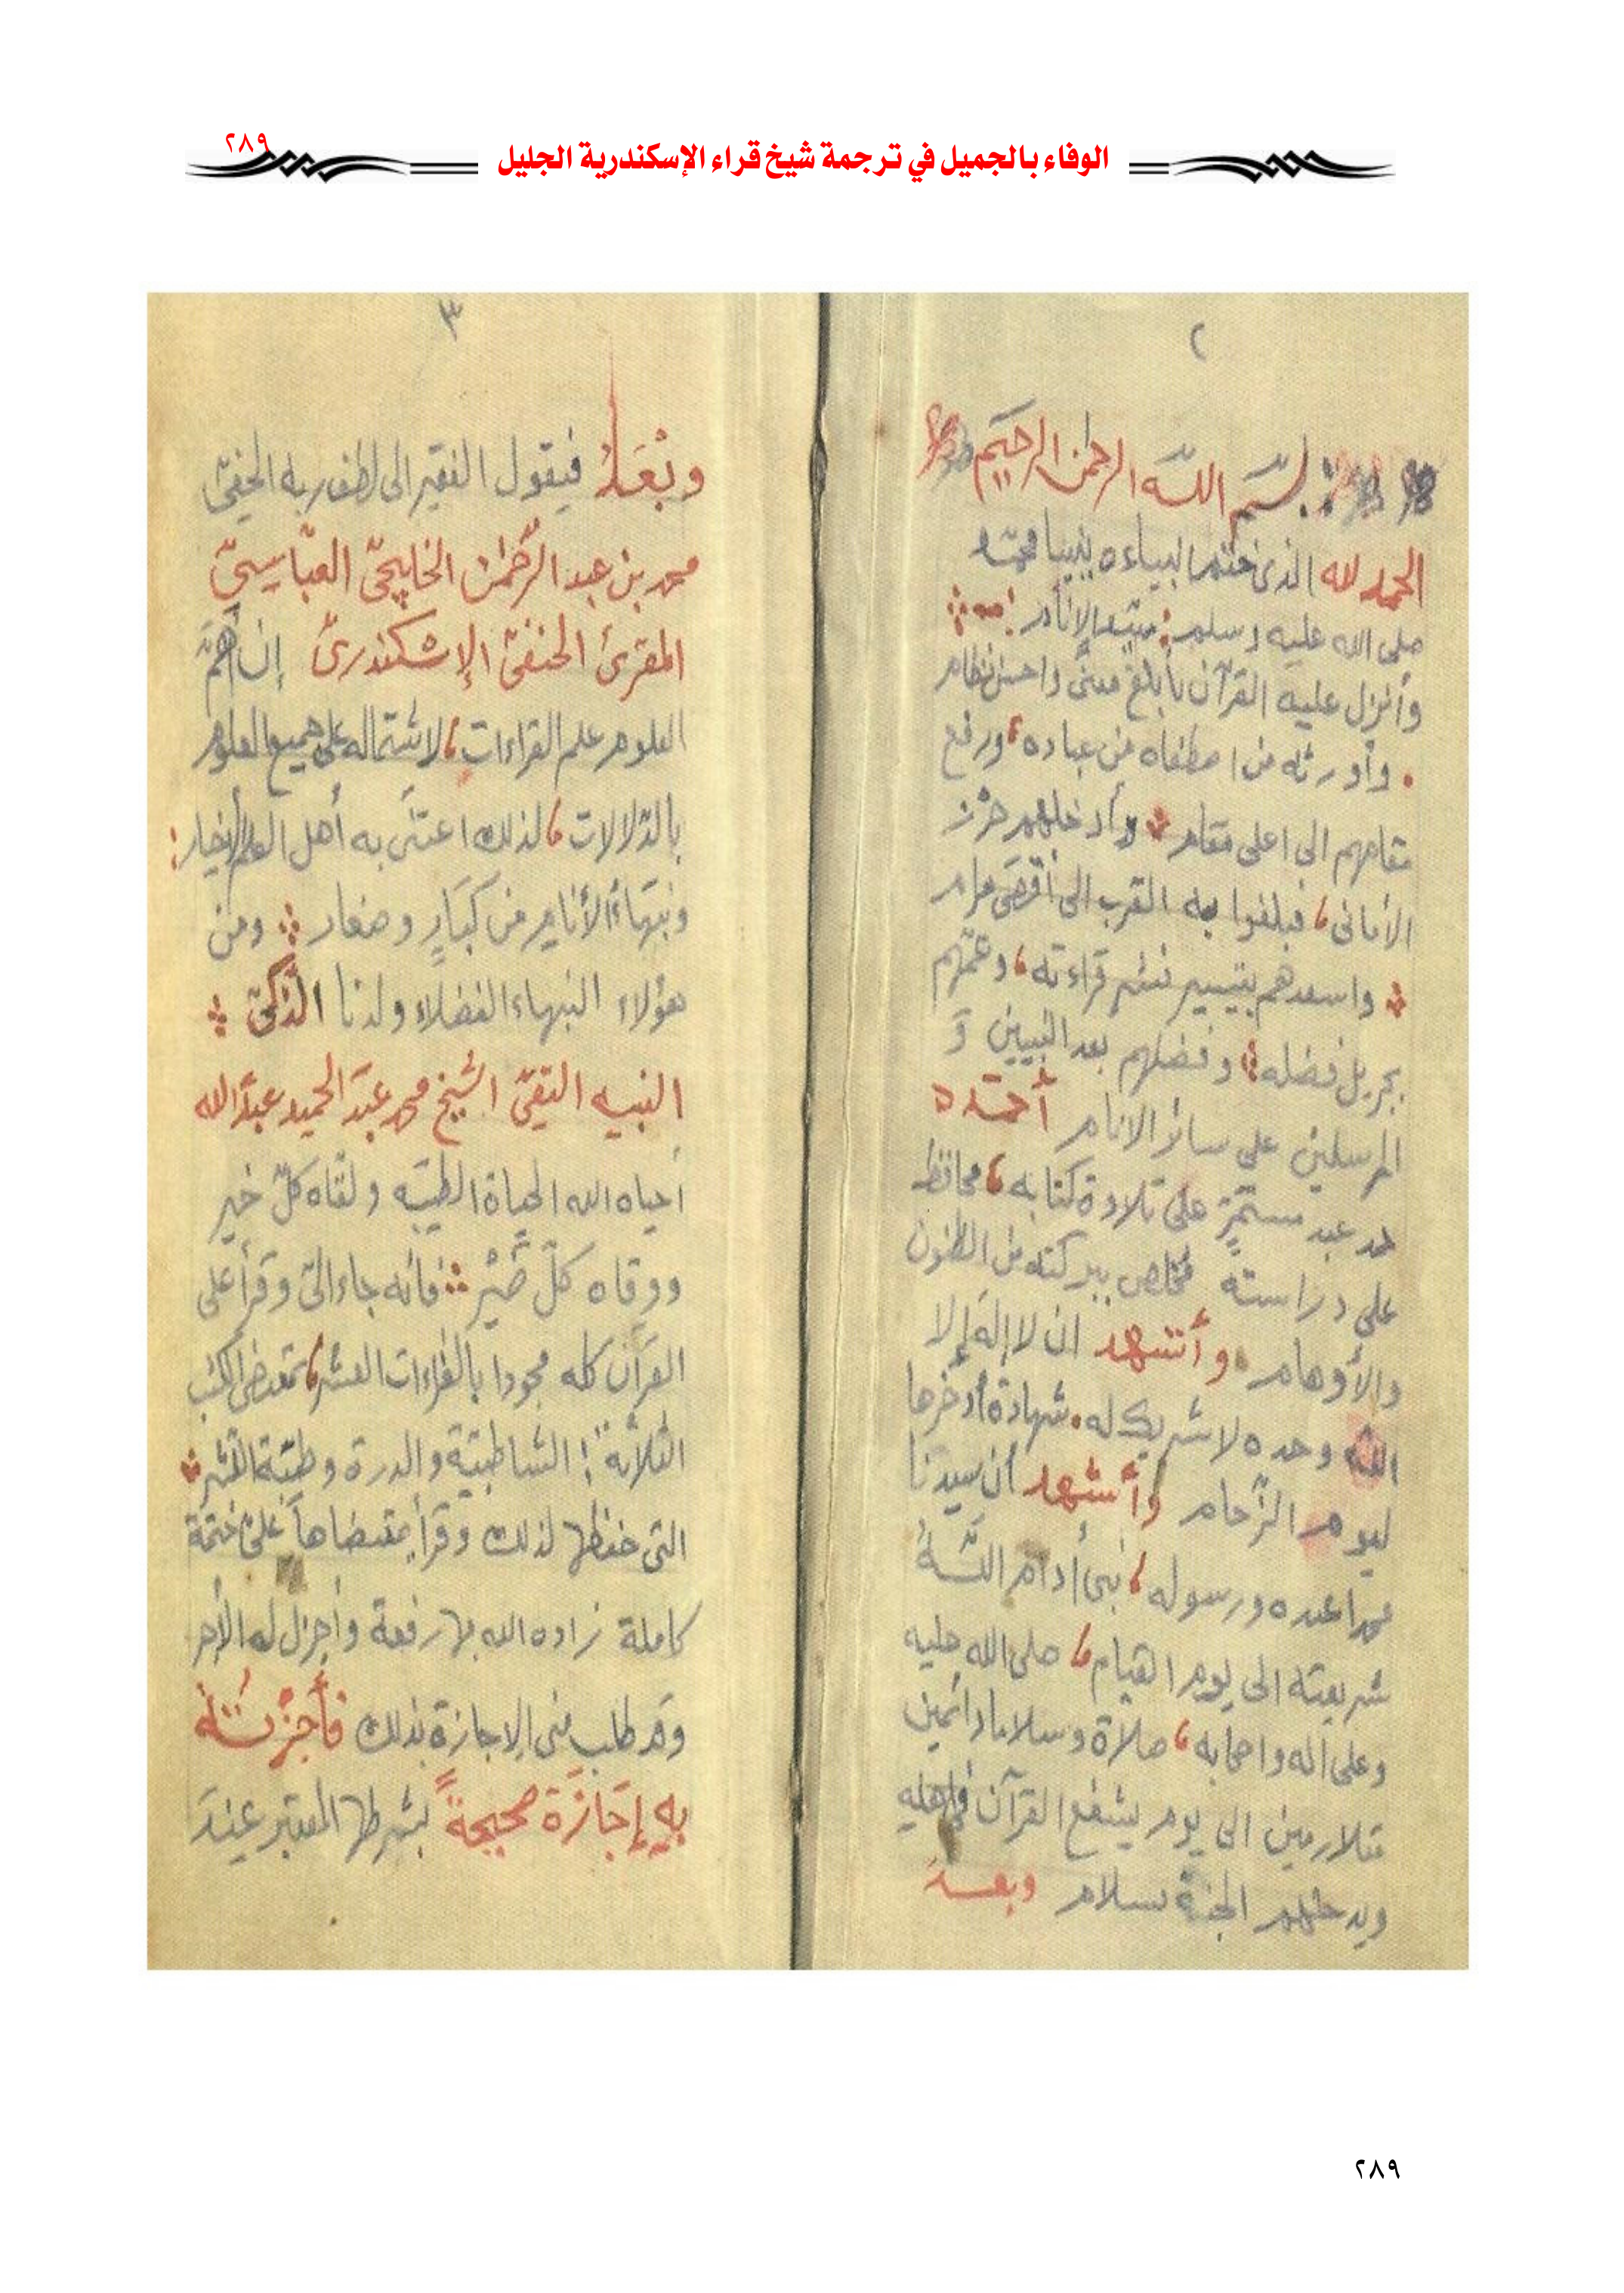 ٢٨٩
الوفاء بالجميل في ترجمة شيخ قراء الإسكندرية الجليل
٢
بسم الله الرحمن الرحيم
الحمد لله الذى ختم انبياءه بنبينا محمد
صلى الله عليه وسلم الإنام
وأنزل عليه القرآن بأبلغ معنى واحسن نظام
وأورثه من اصطفاه من عباده، ورفع
مقامهم الى اعلى مقام وأدخلهم حرز
الأمانى، فبلغوا به القرب الى أقصى مرام
واسعدهم بتيسير نشر قراءته، وعمّهم
بجزيل فضله وفضلهم بعد النبيين وَ
المرسلين على سائر الانام أحمَده
حمد عبد مستمرٍّ على تلاوة كتابه، محافظ
على دراسته مخلص ببركته من الظنون
والأوهام وأشهد ان لا إله إلا
الله وحده لا شريك له. شهادة أدخرها
ليوم الزّحام وأشهد أن سيدنا
محمدا عبده ورسوله، نبى أدام اللّهُ
شريعته الى يوم القيام، صلى الله عليه
وعلى اله واصحابه، صلاة وسلاما دائمين
متلازمين الى يوم يشفع القرآن فى اهله
ويدخلهم الجنة بسلام وبعد
٣
وبَعْدُ فيقول الفقير الى لطف ربه الخفىّ
محمد بن عبد الرَّحمٰن الخليجىّ العبّاسىّ
المقرئ الحنفىّ الإسكندرىّ إن أهمّ
العلوم علم القراءات، لاشتماله على جميع العلوم
بالدّلالات، لذلك اعتنَى به أهل العلم الأخيار:
ونبَهاءُ الأنامِ من كبَارٍ وصغار ومن
هؤلاء النبهاء الفضلاء ولدنا الذّكىّ
النبيه التقىّ الشيخ محمد عبدَ الحميد عبدَ الله
أحياه الله الحياة الطيبّه ولقّاه كلّ خير
ووقاه كلّ ضَيْر فانه جاء الىّ وقرأ على
القرآن كله مجودا بالقراءات العشر، بمقتضى الكتب
الثلاثة: الشاطبيّة والدرة وطيّبة النشر
التى حفظها لذلك وقرأ بمقتضاها علىّ ختمة
كاملة زاده الله بها رفعة وأجزل له الأجر
وقد طلب منى الاجازة بذلك فأجَزْتُهُ
بِه إجَازَة صحيحةً بشرطها المعتبر عندَ
٢٨٩